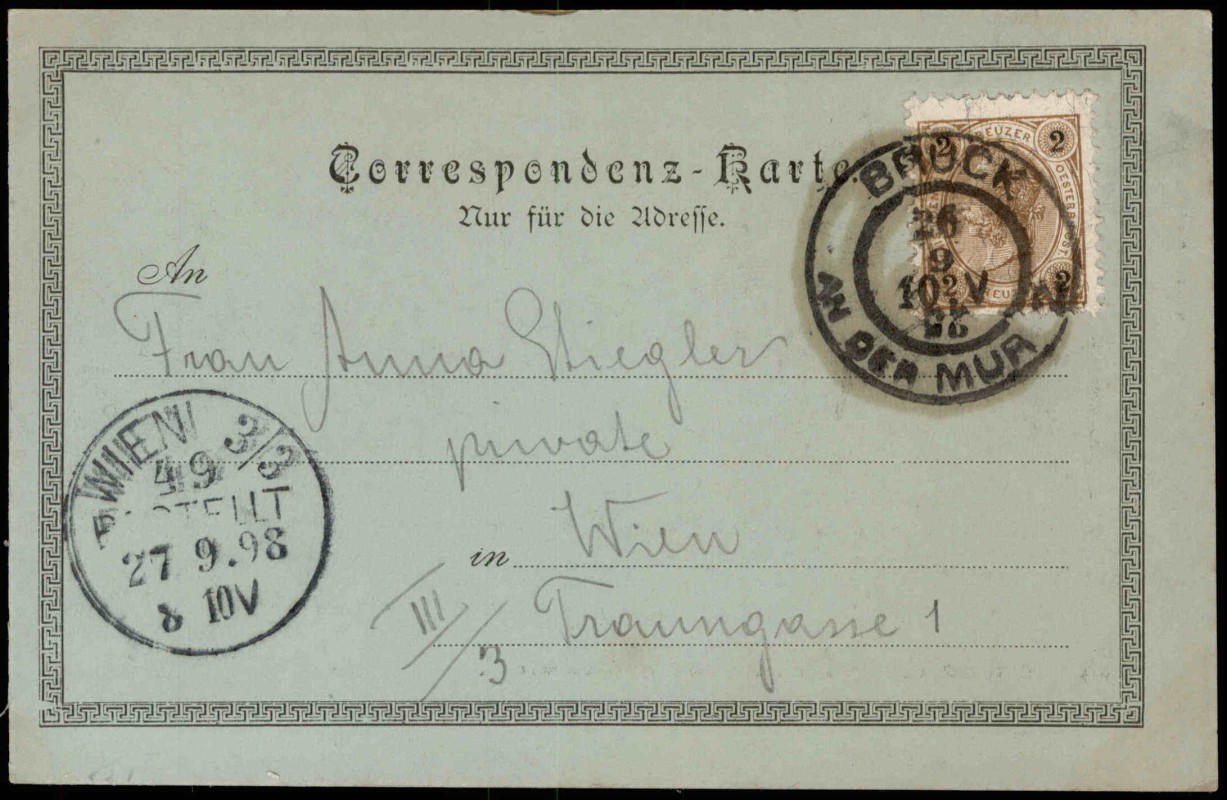 Correspondenz-Karte.
Nur für die Adresse.
An
Frau Anna Stiegler
private
in Wien
III/3 Traungasse 1
BRUCK
26
9
10 V
AN DER MUR
2 2
2 2
WIEN 3/3
49
BESTELLT
27 9.98
8 10V